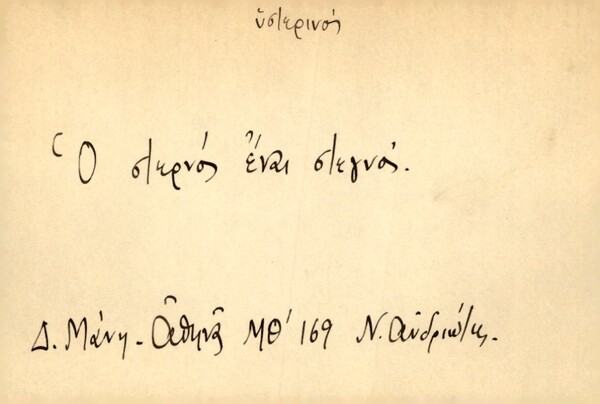 ὑστερινός
Ὁ στερνός ἔναι στεγνός.
Δ. Μάνη - Ἀθηνᾶ ΜΘ' 169 Ν. Ἀνδριώτης.